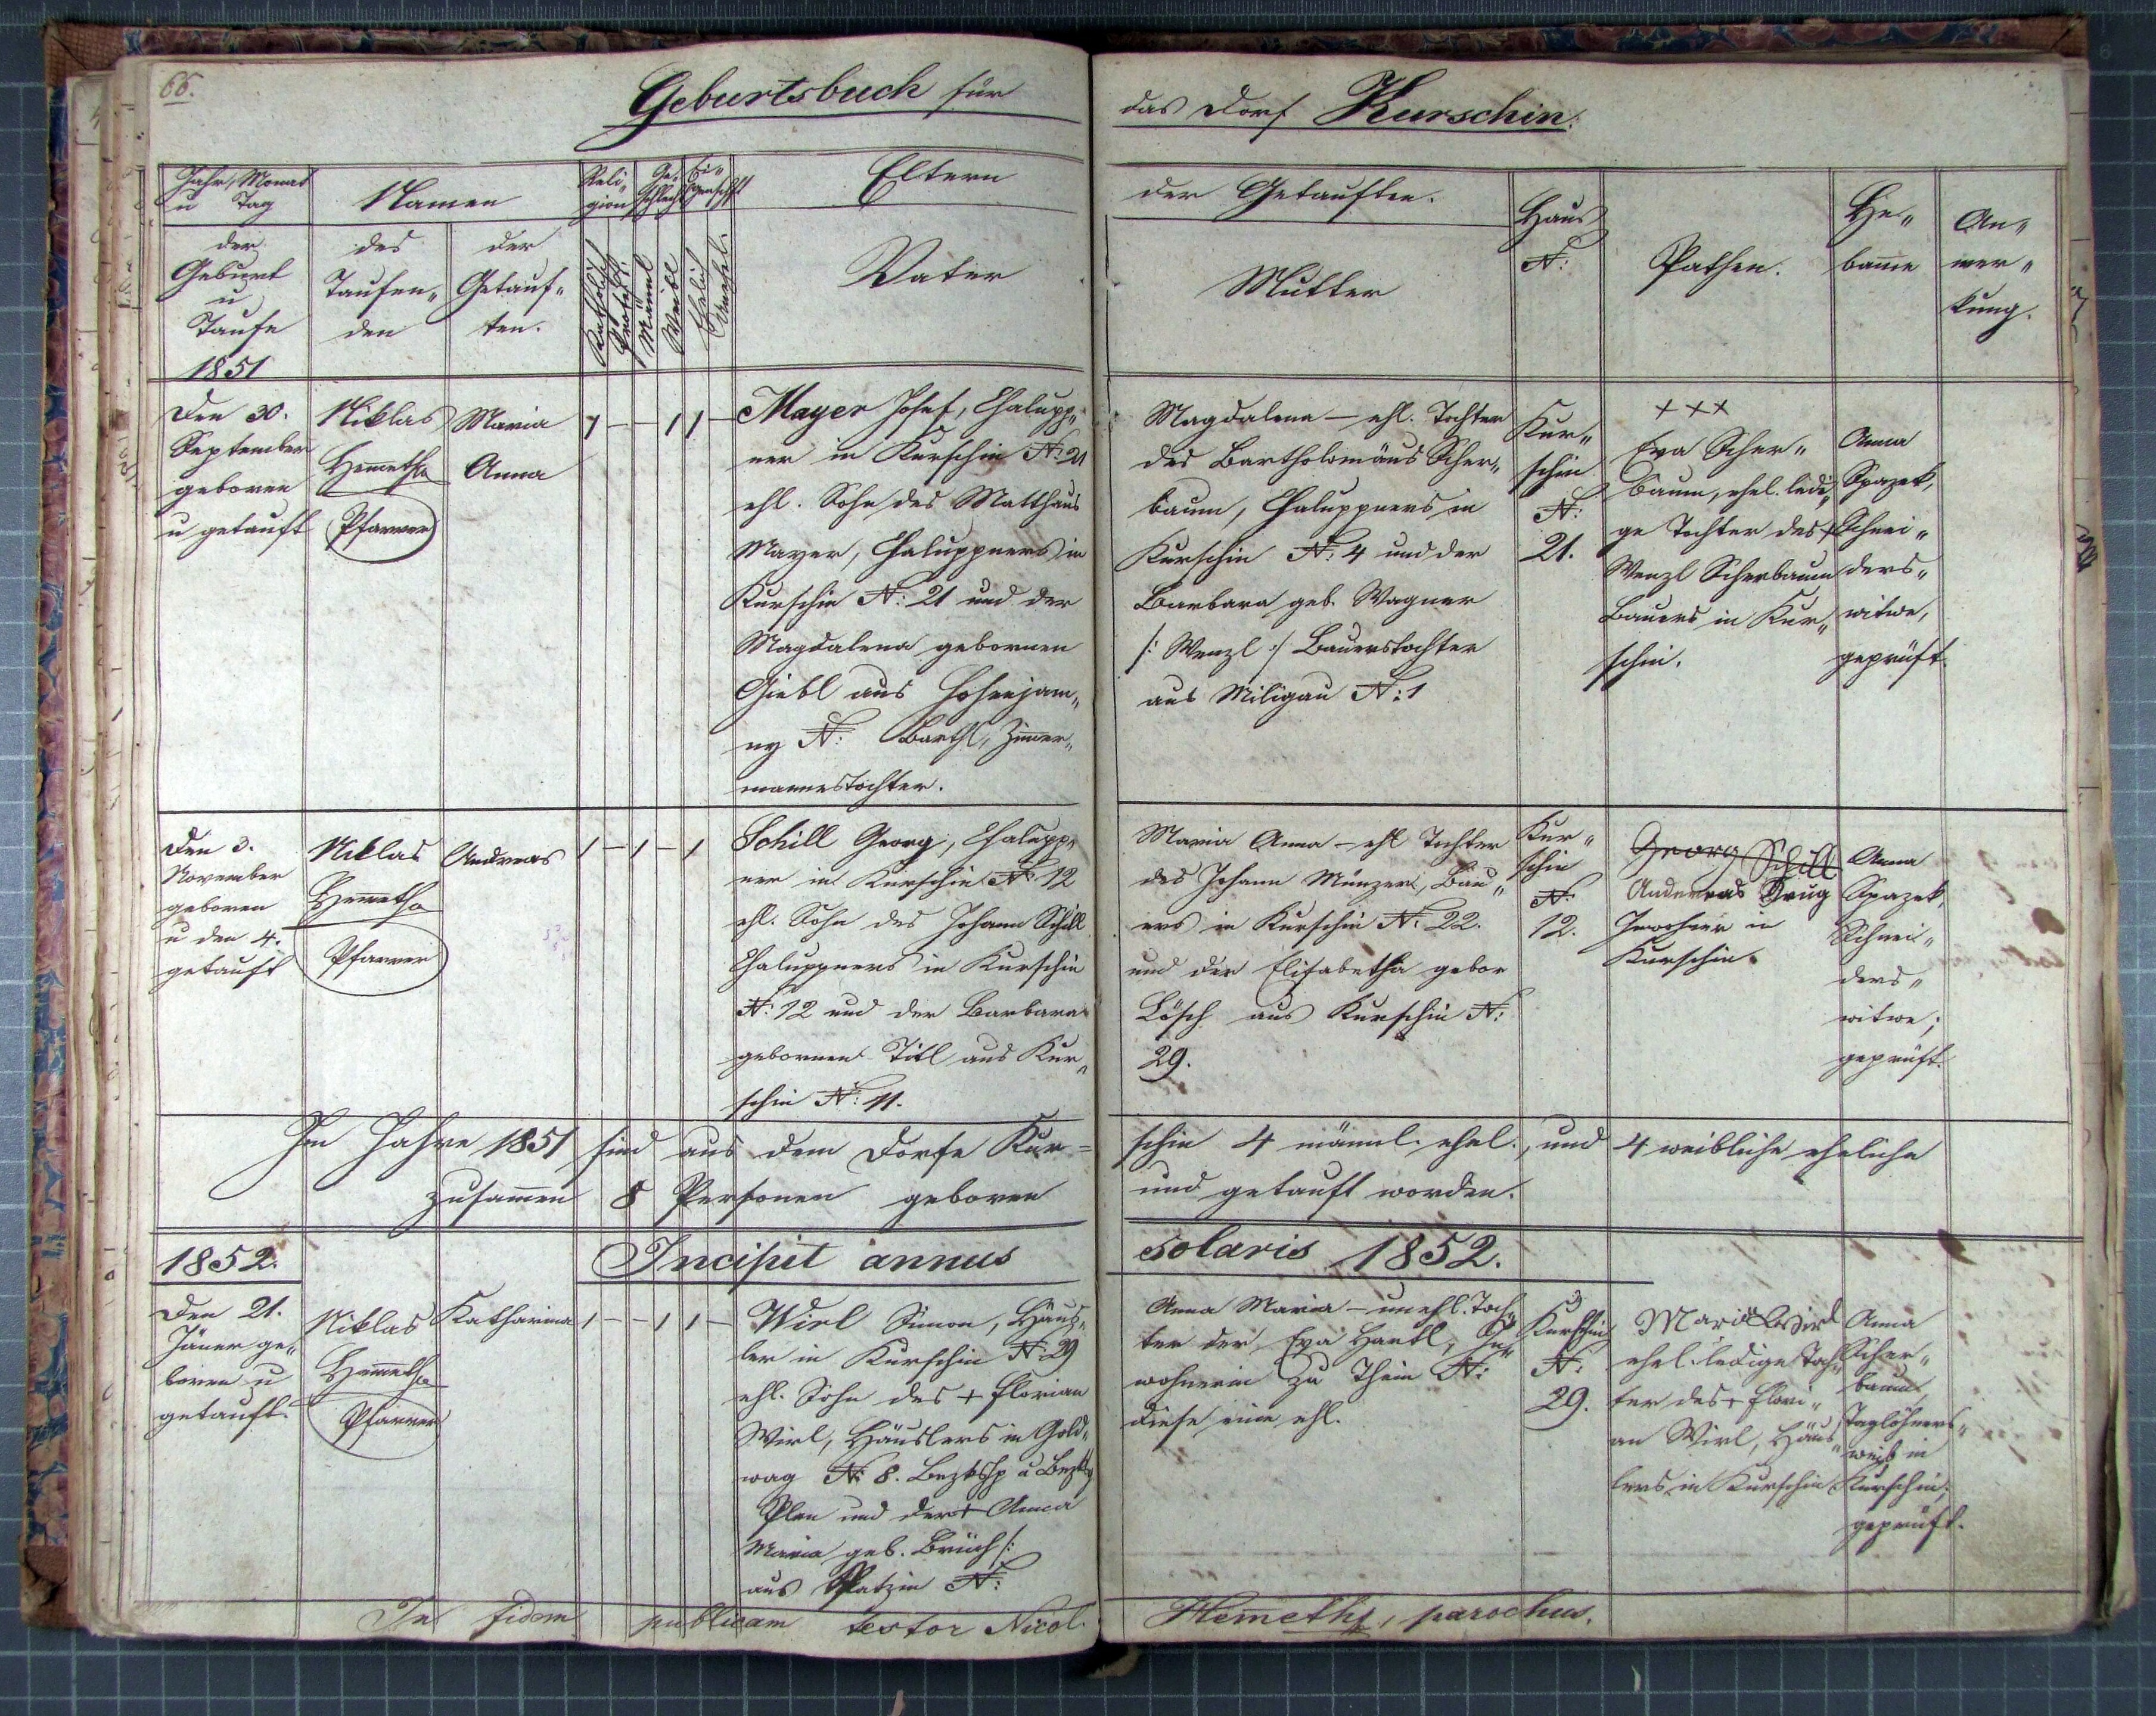 66.
Geburtsbuch für das Dorf Kurschin.
Jahr, Monat
u Tag
der
Geburt
u
Taufe
1851
Namen
des
Taufen„
den
der
Getauf„
ten.
Reli„
gion
Katholisch
Protest.
Ge„
schlecht
Männl
Weibl
Ehelich
Unehel.
Eltern
Vater
der Getauften.
Mutter
Haus
N:
Pathen.
He„
bame
An„
mer„
kung.
Den 30.
September
geboren
u getauft
Niklas
Hemeths
Pfarrer
Maria
Anna
1 – – 1 1 –
Mayer Josef, Chalupp„
ner in Kurschin N: 21
ehl. Sohn des Matthäus
Mayer, Chaluppners in
Kurschin N: 21 und der
Magdalena gebornen
Giebl aus Hohenjam„
ny N: Barthl, Zimer„
mannestochter.
Magdalena – ehl. Tochter
des Bartholomäus Scher„
baum, Chaluppners in
Kurschin N: 4 und der
Barbara geb. Wagner
/: Wenzl :/ Bauerstochter
aus Miligau N: 1
Kur„
schin
N:
21.
+++
Eva Scher„
baum, ehel. ledi„
ge Tochter des +
Wenzl Scherbaum
Bauers in Kur„
schin.
Anna
Spazek,
Schnei„
ders„
witwe,
geprüft
Den 3.
November
geboren
u den 4.
getauft
Niklas
Hemeths
Pfarrer
Andreas
1 – 1 – 1
Schill Georg, Chalupp„
ner in Kurschin N: 12
ehl. Sohn des Johann Schill
Chaluppners in Kurschin
N: 12 und der Barbara
gebornen Titl aus Kur„
schin N: 11.
Maria Anna – ehl Tochter
des Johann Münzer, Bau„
ers in Kurschin N: 22.
und der Elisabetha gebor
Lösch aus Kurschin N:
29.
Kur„
schin
N:
12.
Georg Schill
Andreas
Inwohner in
Kurschin.
Anna
Spazek,
Schnei„
ders„
witwe;
geprüft.
Im Jahre 1851 sind aus dem Dorfe Kur=
schin 4 männl. ehel., und 4 weibliche eheliche
zusamen 8 Personen geboren und getauft worden.
1852.
Incipit annus solaris 1852.
Den 21.
Jäner ge„
boren u
getauft.
Niklas
Hemeths
Pfarrer
Katharina
1 – – 1 1 –
Wirl Simon, Häus„
ler in Kurschin N: 29
ehl. Sohn des + Florian
Wirl, Häuslers in Gold„
wag N: 8.
Plan und der + Anna
Maria geb.
aus N:
Anna Maria – unehl. Toch„
ter der Eva Hartl, In„
wohnerin zu Thein N:
diese eine ehl.
Kurschin
N:
29.
Maria Wirl
ehel. ledige Toch„
ter des + Flori„
an Wirl, Häus„
lers in Kurschin
Anna
Scher„
baum,
Taglöhners„
weib in
Kurschin;
geprüft.
In fidem publicam testor Nicol. Hemeths, parochus.